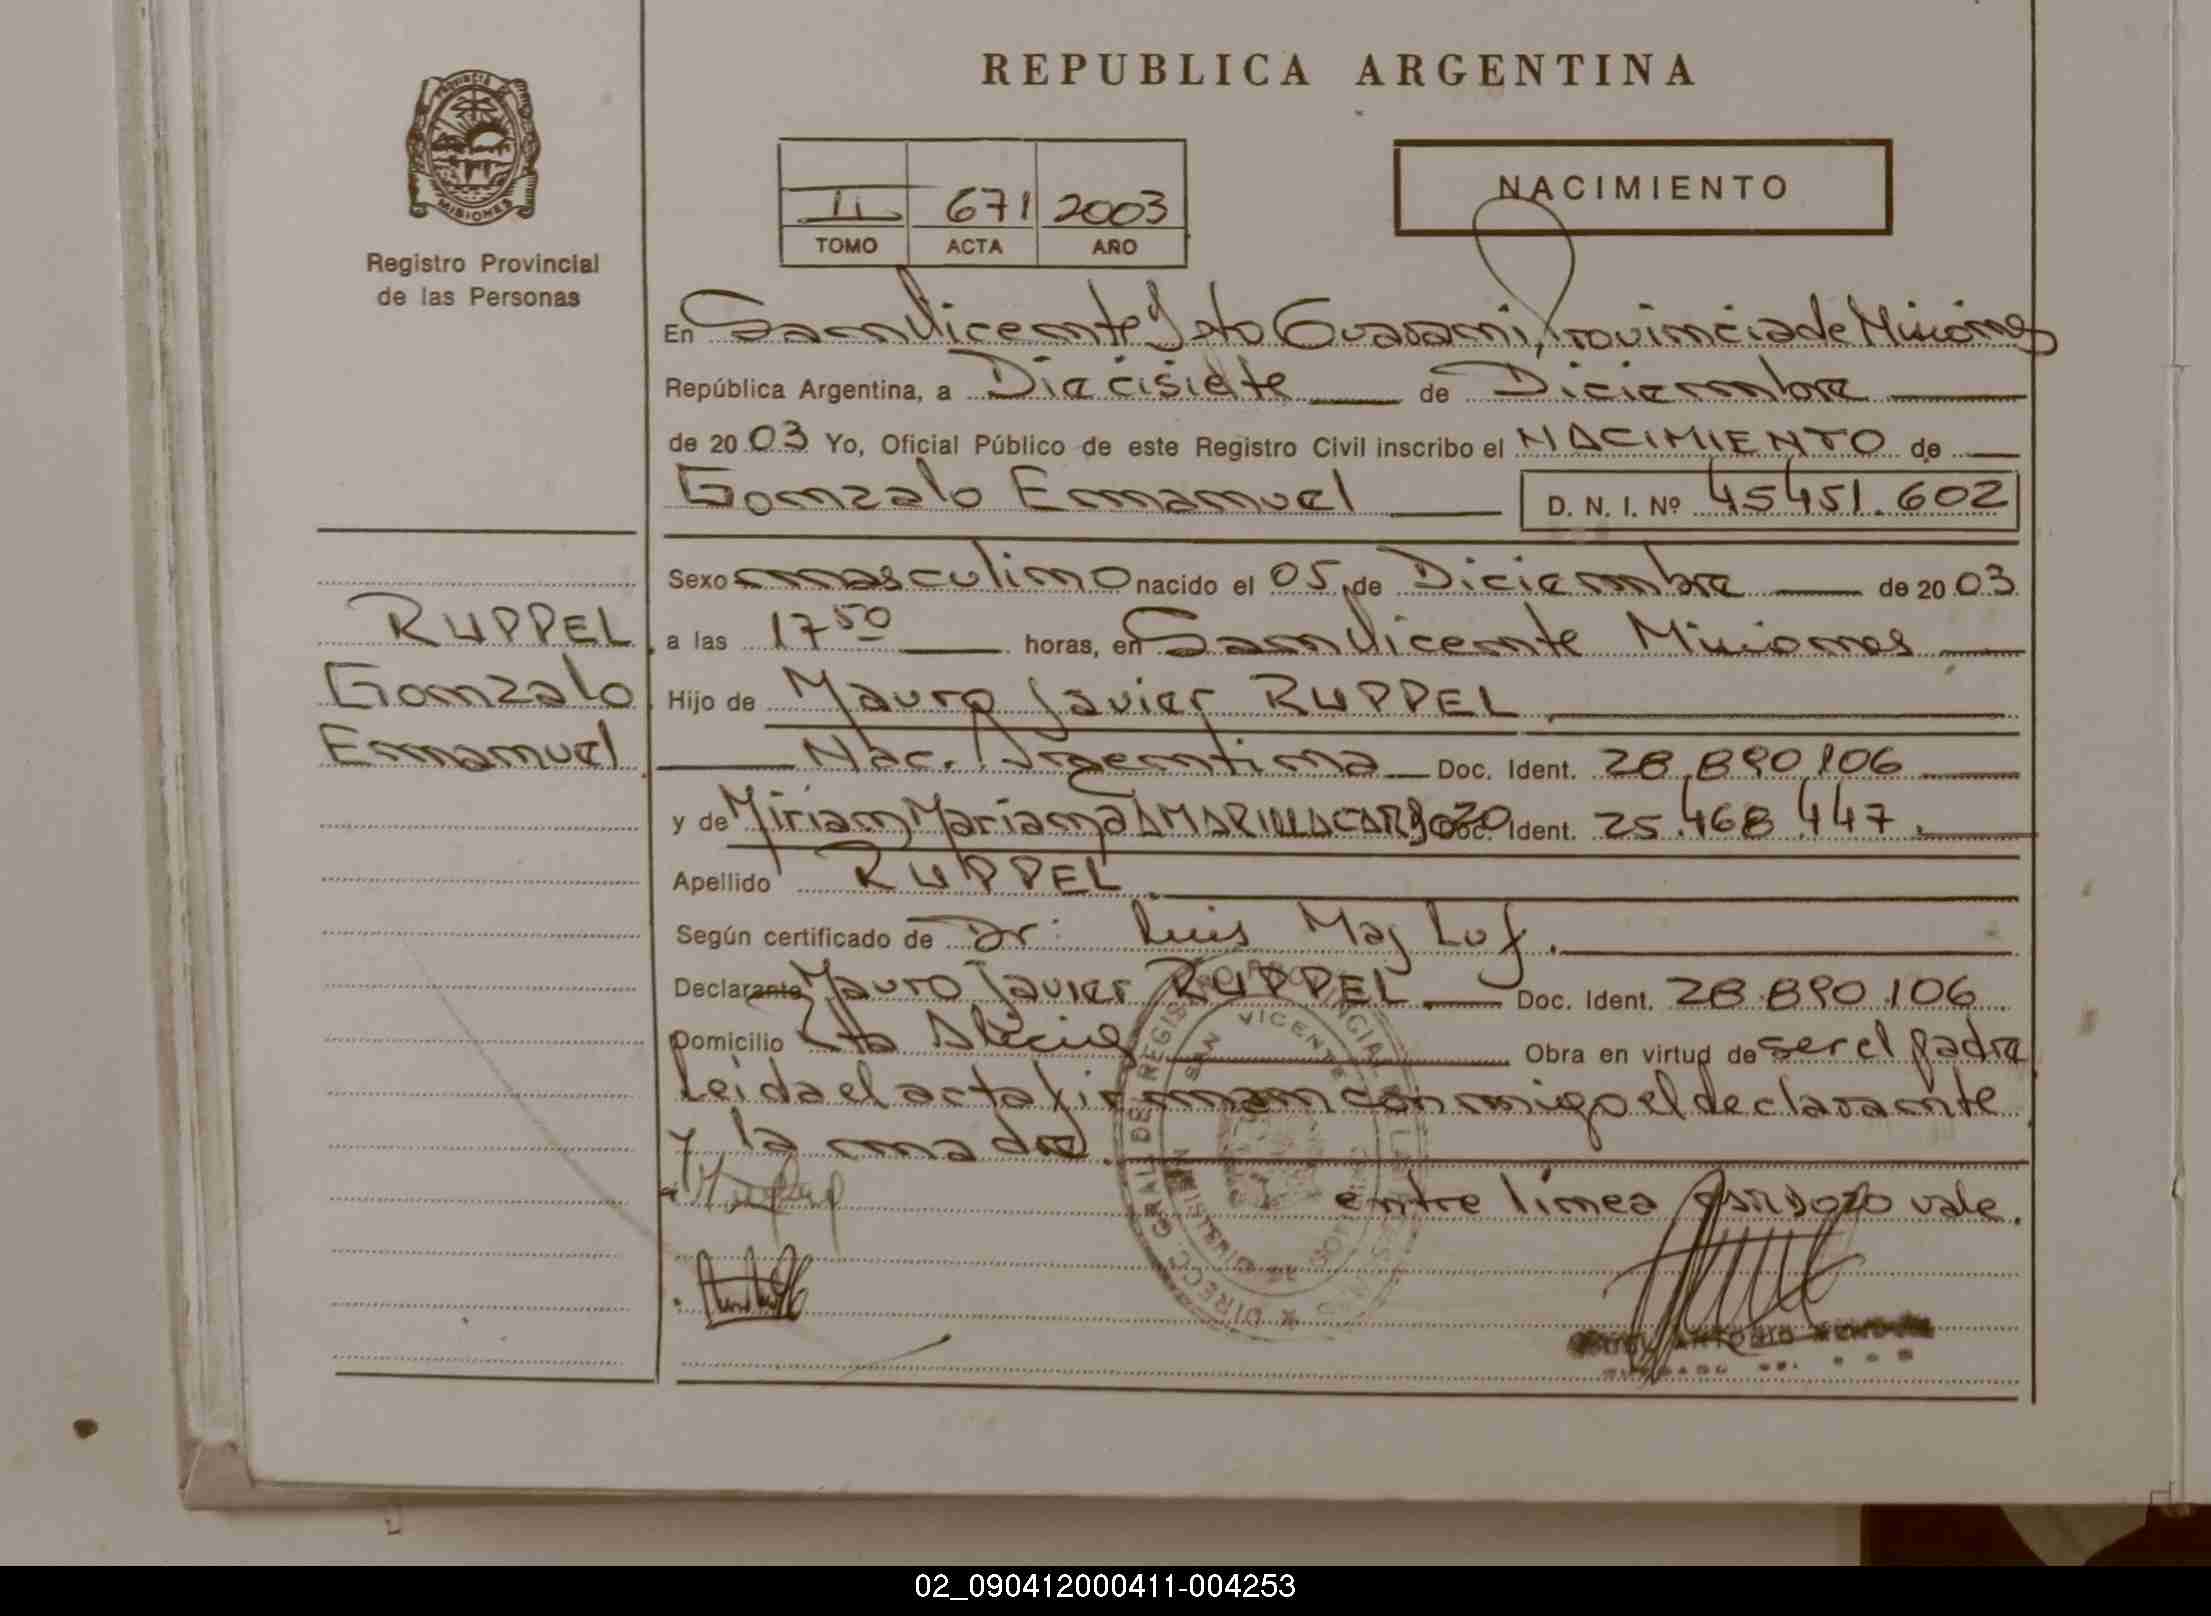 REPUBLICA ARGENTINA
PROVINCIA DE
MISIONES
Registro Provincial
de las Personas
NACIMIENTO
II 671 2003
TOMO ACTA AÑO
En San Vicente Dto Guarani, Provincia de Misiones
República Argentina, a Diecisiete de Diciembre
de 2003 Yo, Oficial Público de este Registro Civil inscribo el NACIMIENTO de
Gonzalo Emanuel D. N. I. Nº 45451.602
Sexo masculino nacido el 05 de Diciembre de 2003
RUPPEL
Gonzalo
Emanuel
a las 17 50 horas, en San Vicente Misiones
Hijo de Mauro Javier RUPPEL
Nac. Argentina Doc. Ident. 28.890.106
y de Miriam Mariana CARDOZO Doc. Ident. 25.468.447.
Apellido RUPPEL.
Según certificado de Dr. Luis Maj Luf.
Declarante Mauro Javier RUPPEL Doc. Ident. 28.890.106
Domicilio Obra en virtud de ser el padre
Leida el acta firman conmigo el declarante
y la madre.
entre línea CARDOZO vale.
SAN VICENTE
MISIONES
ANTONIO
02_090412000411-004253